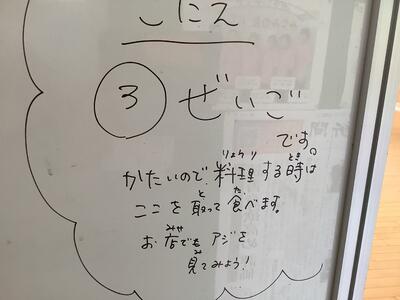 こたえ
③ ぜいご
です。
かたいので、料理する時は
りょうり とき
ここを取って食べます。
と た
お店でも アジを
みせ
見てみよう!
み